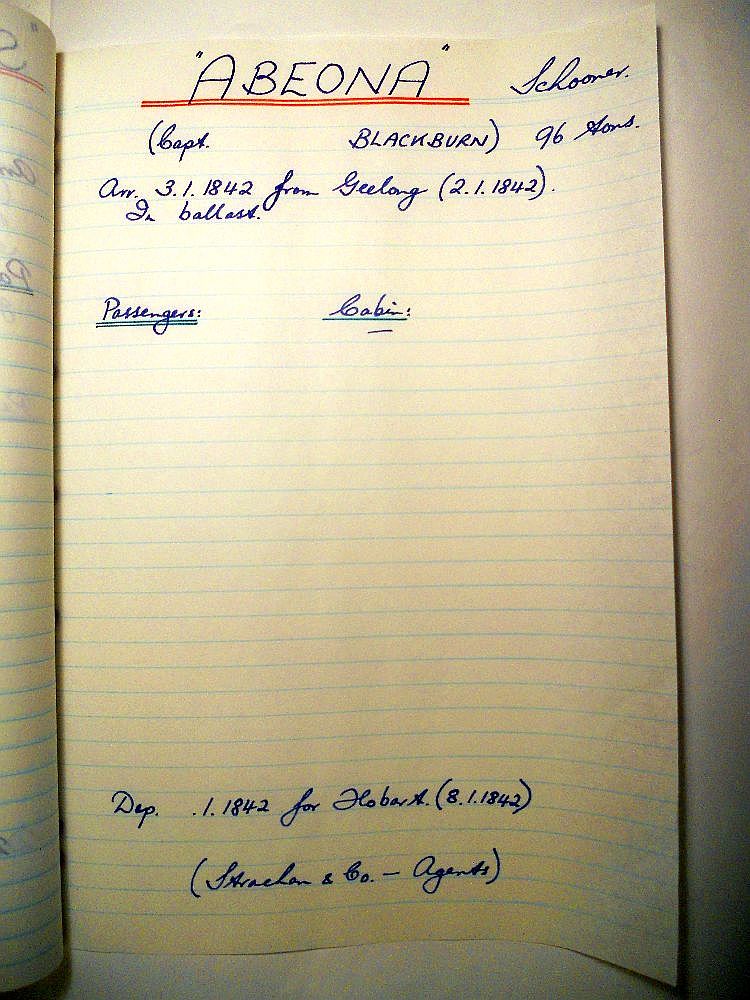 "ABEONA" Schooner.
(Capt. BLACKBURN) 96 tons.
Arr. 3.1.1842 from Geelong (2.1.1842).
In ballast.
Passengers: Cabin:
—
Dep. .1.1842 for Hobart. (8.1.1842)
(Strachan & Co. — Agents)